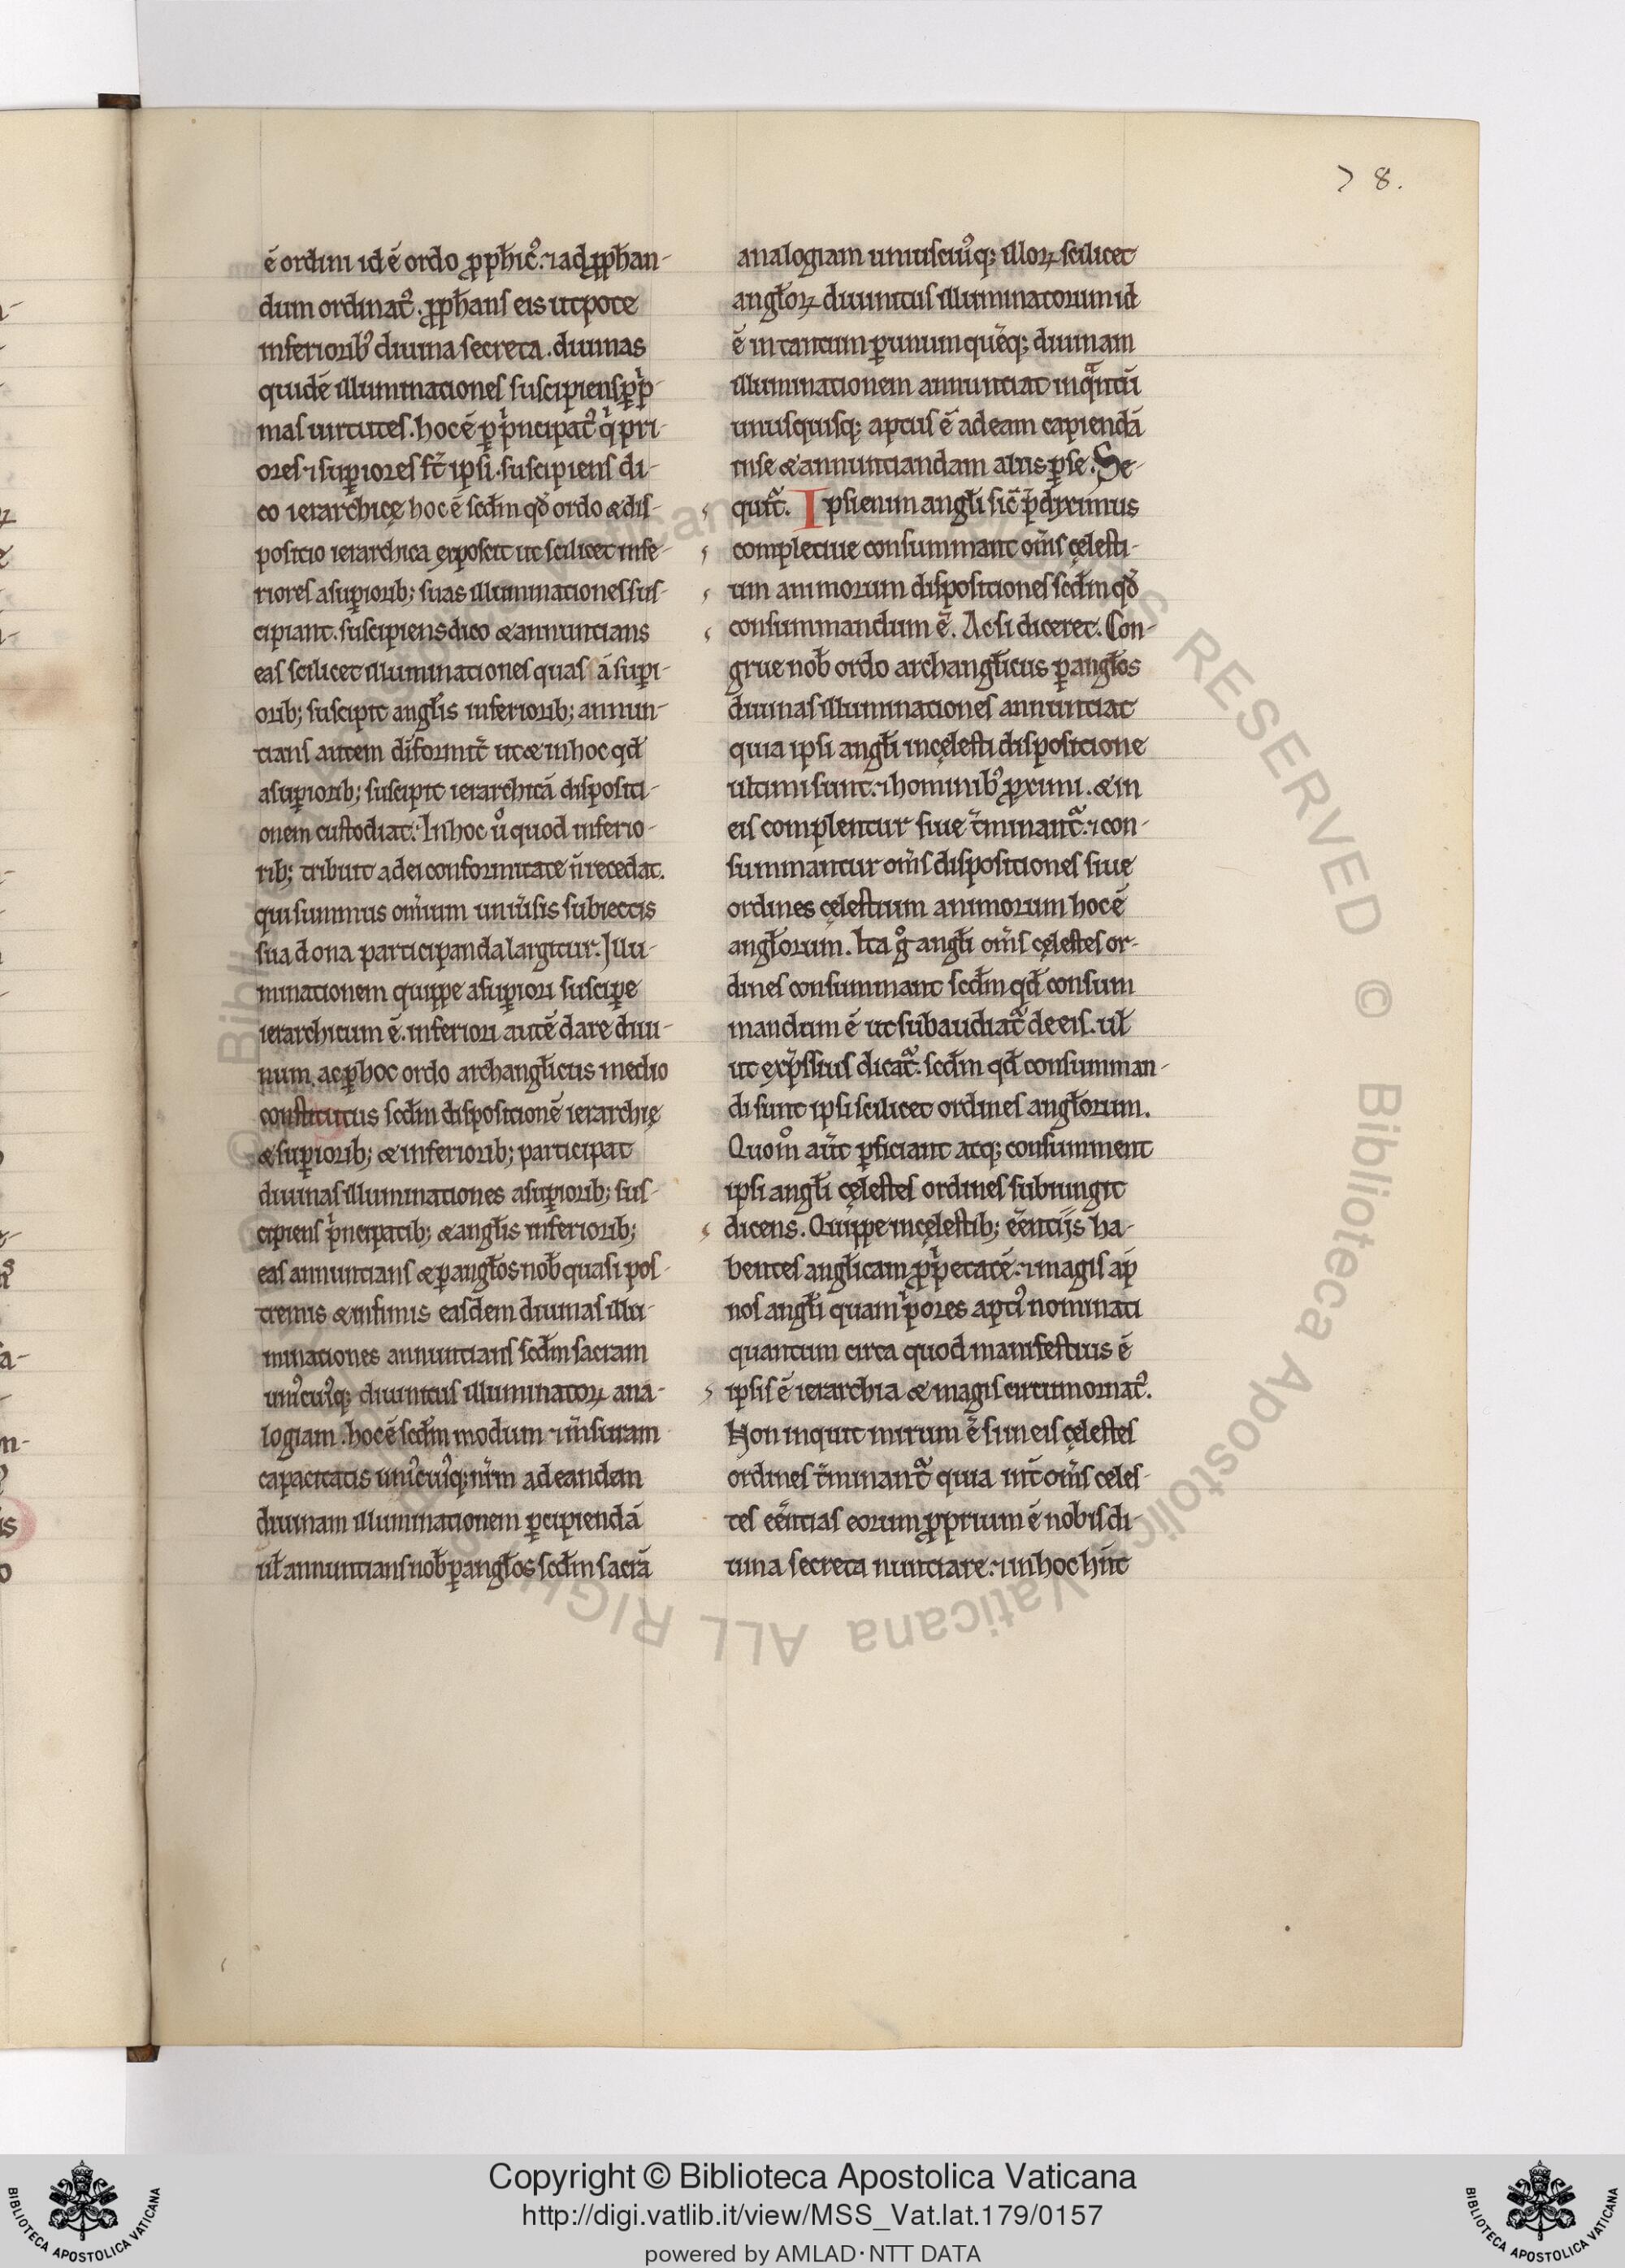 78.
ē ordini id ē ordo ꝓph̄icꝰ. ⁊ ad ꝓph̄an-
dum ordinatꝰ. ꝓph̄ans eis utpote
inferioribꝰ diuina secreta. diuinas
quidē illuminationes suscipiens ꝑ pⁱ-
mas uirtutes. hoc ē ꝑ pⁱncipatꝰ qⁱ pri-
ores ⁊ suꝑiores st̄ ipsi. suscipiens di-
co ierarchicę hoc ē scd̄m qd̄ ordo & dis-
positio ierarchica exposcit ut scilicet infe-
riores a suꝑiorib; suas illuminationes sus-
cipiant. suscipiens dico & annuntians
eas scilicet illuminationes quas a suꝑi-
orib; suscipit angl̄is inferiorib; annun-
tians autem diformit̄ ut & in hoc qd̄
a suꝑiorib; suscipit ierarchicā dispositi-
onem custodiat. In hoc uͦ quod inferio-
rib; tribuit a dei conformitate n̄ recedat.
qui summus om̄ium uniu̇sis subiectis
sua dona participanda largitur. Illu-
minationem quippe a suꝑiori susciꝑe
ierarchicum ē. inferiori autē dare diui-
num. ac ꝑ hoc ordo archangl̄icus medio
constitutus scd̄m dispositionē ierarchię
& suꝑiorib; & inferiorib; participat
diuinas illuminationes a suꝑiorib; sus-
cipiens pⁱncipatib; & angl̄is inferiorib;
eas annuntians & ꝑ angl̄os nob̄ quasi pos-
tremis & infimis easdem diuinas illu-
minationes annuntians scd̄m sacram
uniꝰcuiꝰq; diuinitus illuminatoꝝ ana-
logiam. hoc ē scd̄m modum ⁊ m̄suram
capacitatis uniꝰcuiꝰq; nr̄m ad eandem
diuinam illuminationem ꝑcipiendā
ul̄ annuntians nob̄ ꝑ angl̄os scd̄m sacrā
analogiam uniuscuiꝰq; illoꝝ scilicet
angl̄oꝝ diuinitus illuminatorum id
ē in tantum ꝑ unumquēq; diuinam
illuminationem annuntiat inqᵃntū
unusquisq; aptus ē ad eam capiendā
in se & annuntiandam aliis ꝑ se. Se-
quit᷑. Ipsi enim angl̄i sic̄ p̄diximus
completiue consummant om̄s cęlesti-
um animorum dispositiones scd̄m qd̄
consummandum ē. Ac si diceret. Con-
grue nob̄ ordo archangl̄icus ꝑ angl̄os
diuinas illuminationes annuntiat
quia ipsi angl̄i in cęlesti dispositione
ultimi sunt. ⁊ hominibꝰ ꝓximi. & in
eis complentur siue t̄minant᷑. ⁊ con-
summantur om̄s dispositiones siue
ordines cęlestium animorum hoc ē
angl̄orum. Ita gͦ angl̄i om̄s cęlestes or-
dines consummant scd̄m qd̄ consum
mandum ē ut subaudiat᷑ de eis. ul̄
ut exp̄ssius dicat᷑. scd̄m qd̄ consumman-
di sunt ipsi scilicet ordines angl̄orum.
Quomͦ aut̄ ꝑficiant atq; consumment
ipsi angl̄i cęlestes ordines subiungit
dicens. Quippe in cęlestib; eēntiis ha-
bentes angl̄icam ꝓpⁱetatē. ⁊ magis ap̄
nos angl̄i quam pⁱores aptiꝰ nominati
quantum circa quod manifestius ē
ipsis ē ierarchia & magis circumornatꝰ.
Non inquit mirum ē si in eis cęlestes
ordines t̄minant᷑ quia int̄ om̄s celes-
tes eēntias eorum ꝓprium ē nobis di-
uina secreta nuntiare. ⁊ in hoc hn̄t
Copyright © Biblioteca Apostolica Vaticana
http://digi.vatlib.it/view/MSS_Vat.lat.179/0157
powered by AMLAD·NTT DATA
BIBLIOTECA APOSTOLICA VATICANA
BIBLIOTECA APOSTOLICA VATICANA
© Biblioteca Apostolica Vaticana ALL RIGHTS RESERVED